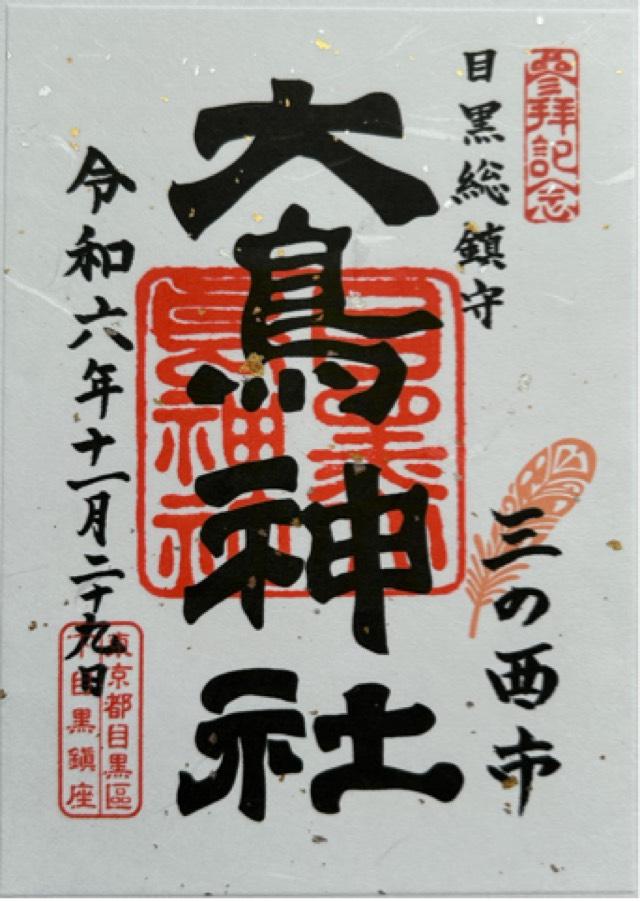 参拝記念
目黒総鎮守
三の酉市
大鳥神社
令和六年十一月二十九日
東京都目黒區
下目黒鎮座